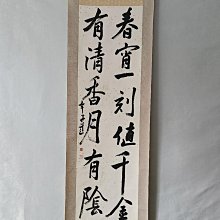 春宵一刻値千金
有清香月有陰